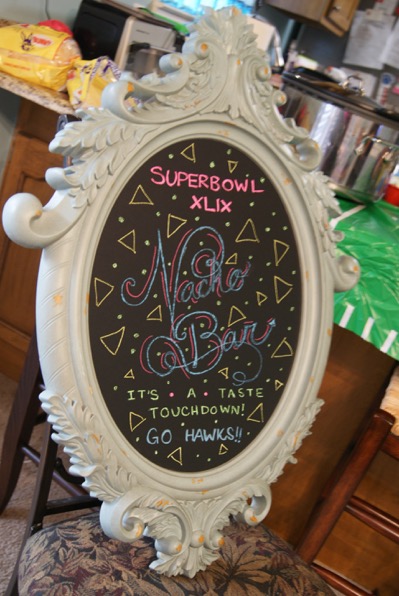 SUPERBOWL
XLIX
Nacho
Bar
IT'S • A • TASTE
TOUCHDOWN!
GO HAWKS!!